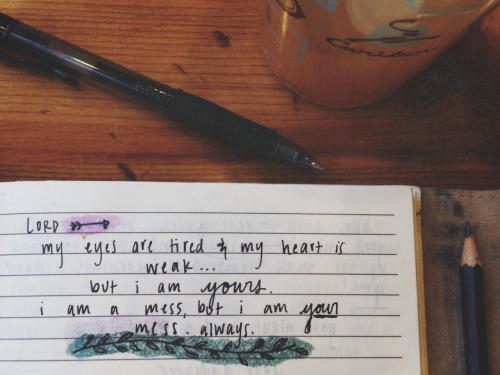 Caribou
LORD
my eyes are tired & my heart is
weak...
but i am yours.
i am a mess, but i am your
mess. always.